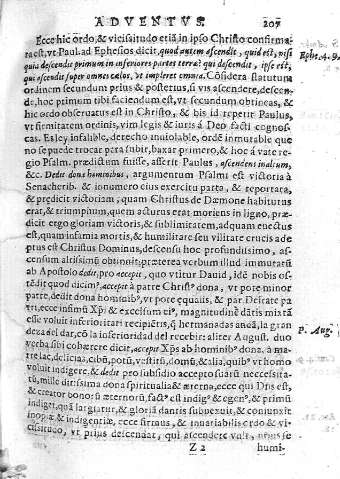 ADVENTVS. 207
Ecce hic ordo, & vicissitudo etiã in ipso Christo confirma-
ta est, vt Paul. ad Ephesios dicit, quod autem ascendit, quid est, nisi
quia descendit primum in inferiores partes terræ? qui descendit, ipse est
qui ascendit super omnes cælos, vt impleret omnia. Cõsidera statutum
ordinem secundum prius & posterius, si vis ascendere, descen-
de, hoc primum tibi faciendum est, vt secundum obtineas, &
hic ordo obseruatus est in Christo, & his id repetit Paulus,
vt firmitatem ordinis, vim legis & iuris à Deo facti cognos-
cas. Es ley infalible, derecho inuiolable, ordẽ inmutable que
no se puede trocar pera subir, baxar primero, & hoc à vate re-
gio Psalm. prædictum fuisse, asserit Paulus, ascendens in altum,
&c. Dedit dona hominibus, argumentum Psalmi est victoria à
Senacherib. & ionumero eius exercitu parta, & reportata,
& prædicit victoriam, quam Christus de Dæmone habiturus
erat, & triumphum, quem acturus erat moriens in ligno, præ-
dicit ergo gloriam victoris, & sublimitatem, ad quam euectus
est, quam infamia mortis, & humilitate seu vilitate crucis ade
ptus est Christus Dominus, descensu hoc profundissimo, as-
censum altissimũ obtinuit: præterea verbum illud immutatũ
ab Apostolo dedit, pro accepit, quo vtitur Dauid, idẽ nobis os-
tẽdit quod dicim⁹ accepit à patre Christ⁹ dona, vt pore minor
patre, dedit dona hominib⁹, vt pore æqualis, & par Dei
esse voluit inferioritati recipiẽtis, q̃ hermanadas andã, la gran
deza del dar, cõ la inferioridad del recebir: aliter August. duo
verba sibi cohærere dicit, accepit Xp̃s ab hominib⁹ dona, à ma-
tre lac, delicias, cibũ, potũ, vestitũ, domũ, & alia, quib⁹ vt homo
voluit indigere, & dedit pro subsidio
& creator bonorũ æternorũ, fact⁹ est indig⁹ & egen⁹, & primũ
indiget, quã largiatur, & gloriã dantis subuexit, & coniunxit
inopiæ & indigentiæ, ecce firmus, & inuariabilis ordo & vi-
cissitudo, vt prius descendat, qui ascendere vult,
Z 2 humi-
Ephe. 4. 9.
P. Aug.